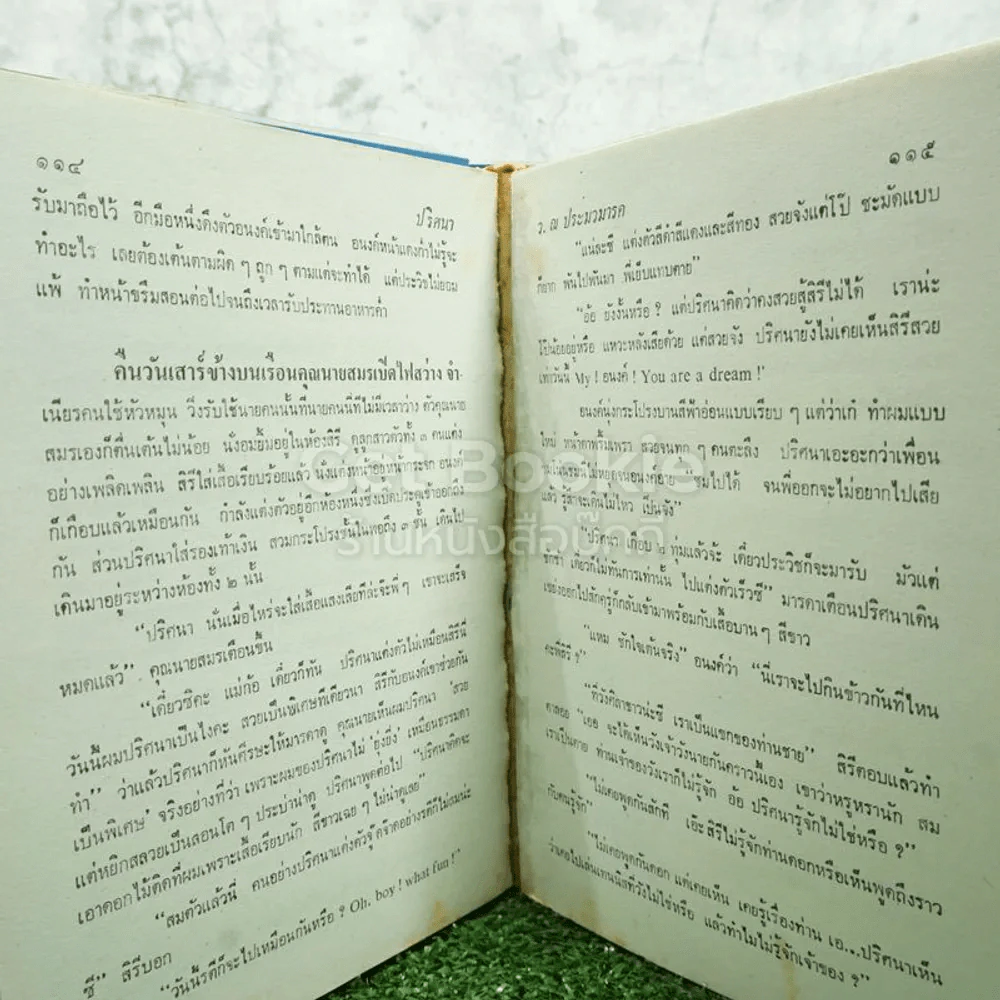 ๑๑๔
ปริศนา
รับมาถือไว้ อีกมือหนึ่งดึงตัวอนงค์เข้ามาใกล้ตน อนงค์หน้าแดงก่ำไม่รู้จะ
ทำอะไร เลยต้องเต้นตามผิด ๆ ถูก ๆ ตามแต่จะทำได้ แต่ประวิชไม่ยอม
แพ้ ทำหน้าขรึมสอนต่อไปจนถึงเวลารับประทานอาหารค่ำ
คืนวันเสาร์ข้างบนเรือนคุณนายสมรเปิดไฟสว่าง จำ-
เนียรคนใช้หัวหมุน วิ่งรับใช้นายคนนั้นทีนายคนนี้ทีไม่มีเวลาว่าง ตัวคุณนาย
สมรเองก็ตื่นเต้นไม่น้อย นั่งอมยิ้มอยู่ในห้องสิรี ดูลูกสาวตัวทั้ง ๓ คนแต่ง
อย่างเพลิดเพลิน สิรีใส่เสื้อเรียบร้อยแล้ว นั่งแต่งหน้าอยู่หน้ากระจก อนงค์
ก็เกือบแล้วเหมือนกัน กำลังแต่งตัวอยู่อีกห้องหนึ่งซึ่งเปิดประตูเข้าออกถึง
กัน ส่วนปริศนาใส่รองเท้าเงิน สวมกระโปรงชั้นในพอถึง ๓ ชั้น เดินไป
เดินมาอยู่ระหว่างห้องทั้ง ๒ นั้น
“ปริศนา นั่นเมื่อไหร่จะใส่เสื้อแสงเสียทีล่ะจ๊ะพี่ๆ เขาจะเสร็จ
หมดแล้ว” คุณนายสมรเตือนขึ้น
“เดี๋ยวซิคะ แม่ก้อ เดี๋ยวก็ทัน ปริศนาแต่งตัวไม่เหมือนสิรีนี่
วันนี้ผมปริศนาเป็นไงคะ สวยเป็นพิเศษทีเดียวนา สิรีกับอนงค์เขาช่วยกัน
ทำ” ว่าแล้วปริศนาก็หันศีรษะให้มารดาดู คุณนายเห็นผมปริศนา ‘สวย
เป็นพิเศษ’ จริงอย่างที่ว่า เพราะผมของปริศนาไม่ ‘ยุ่งยิ่ง’ เหมือนธรรมดา
แต่หยิกสลวยเป็นลอนโต ๆ ประบ่าน่าดู ปริศนาพูดต่อไป “ปริศนาคิดจะ
เอาดอกไม้ติดที่ผมเพราะเสื้อเรียบนัก สีขาวเฉยๆ ไม่น่าดูเลย”
ซี” สิรีบอก
“วันนี้รตีก็จะไปเหมือนกันหรือ ? Oh, boy ! what fun !”
๑๑๕
ว. ณ ประมวญมารค
“แน่ละซี แต่งตัวสีดำสีแดงและสีทอง สวยจังแต่โป๊ ชะมัดแบบ
ก็ยาก พันไปพันมา พี่เย็บแทบตาย”
“อ้อ ยังงั้นหรือ ? แต่ปริศนาคิดว่าคงสวยสู้สิรีไม่ได้ เราน่ะ
โป๊น้อยอยู่หรือ แหวะหลังเสียด้วย แต่สวยจัง ปริศนายังไม่เคยเห็นสิรีสวย
เท่าวันนี้ My ! อนงค์ ! You are a dream !’
อนงค์นุ่งกระโปรงบานสีฟ้าอ่อนแบบเรียบ ๆ แต่ว่าเก๋ ทำผมแบบ
ใหม่ หน้าตาพริ้มเพรา สวยจนทุก ๆ คนตะลึง ปริศนาเอะอะกว่าเพื่อน
แล้ว รู้สึกจะเดินไม่ไหว เป็นจัง”
“ปริศนา เกือบ ๒ ทุ่มแล้วจ้ะ เดี๋ยวประวิชก็จะมารับ มัวแต่
ชักช้า เดี๋ยวก็ไม่ทันการเท่านั้น ไปแต่งตัวเร็วซี” มารดาเตือนปริศนาเดิน
เขย่งออกไปสักครู่ก็กลับเข้ามาพร้อมกับเสื้อบานๆ สีขาว
“แหม ชักใจเต้นจริง” อนงค์ว่า “นี่เราจะไปกินข้าวกันที่ไหน
คะพี่สิรี ?”
“ที่วังศิลาขาวน่ะซี เราเป็นแขกของท่านชาย” สิรีตอบแล้วทำ
ตาลอย “เออ จะได้เห็นวังเจ้าวังนายกันคราวนี้เอง เขาว่าหรูหรานัก สม
เราเป็นตาย ท่านเจ้าของวังเราก็ไม่รู้จัก อ้อ ปริศนารู้จักไม่ใช่หรือ ?”
“ไม่เคยพูดกันสักที เอ๊ะสิรีไม่รู้จักท่านดอกหรือเห็นพูดถึงราว
กับคนรู้จัก”
“ไม่เคยพูดกันดอก แต่เคยเห็น เคยรู้เรื่องท่าน เอ...ปริศนาเห็น
ว่าเคยไปเล่นเทนนิสที่วังไม่ใช่หรือ แล้วทำไมไม่รู้จักเจ้าของ ?”
Get Bookie
ร้านหนังสือบุ๊คกี้